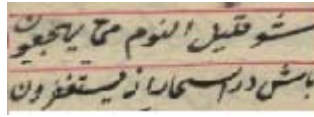 شو قلیل النوم مما یهجعون
باش در اسحار از یستغفرون